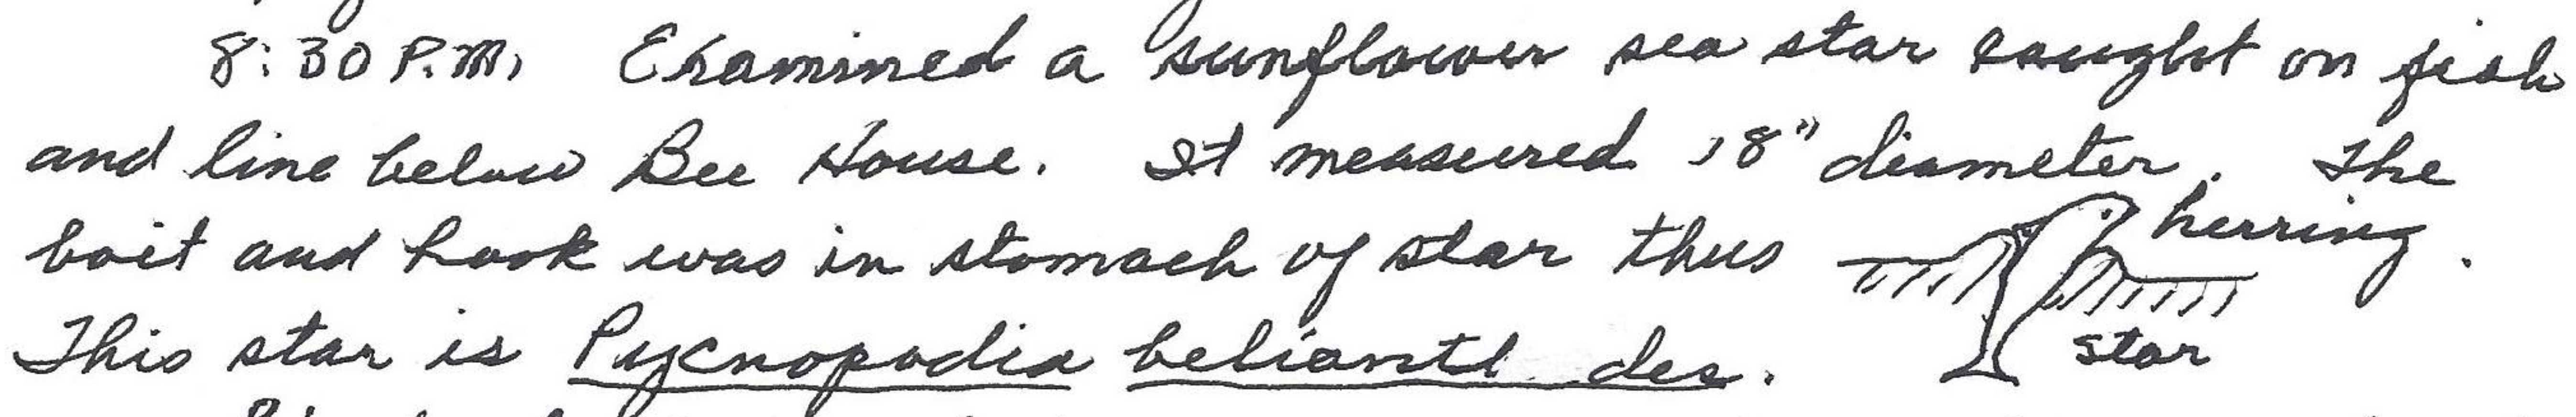 8:30 P.M. Examined a sunflower sea star caught on fish
and line below Bee House. It measured 18" diameter. The
bait and hook was in stomach of star thus herring.
star
This star is Pycnopodia helianti des.